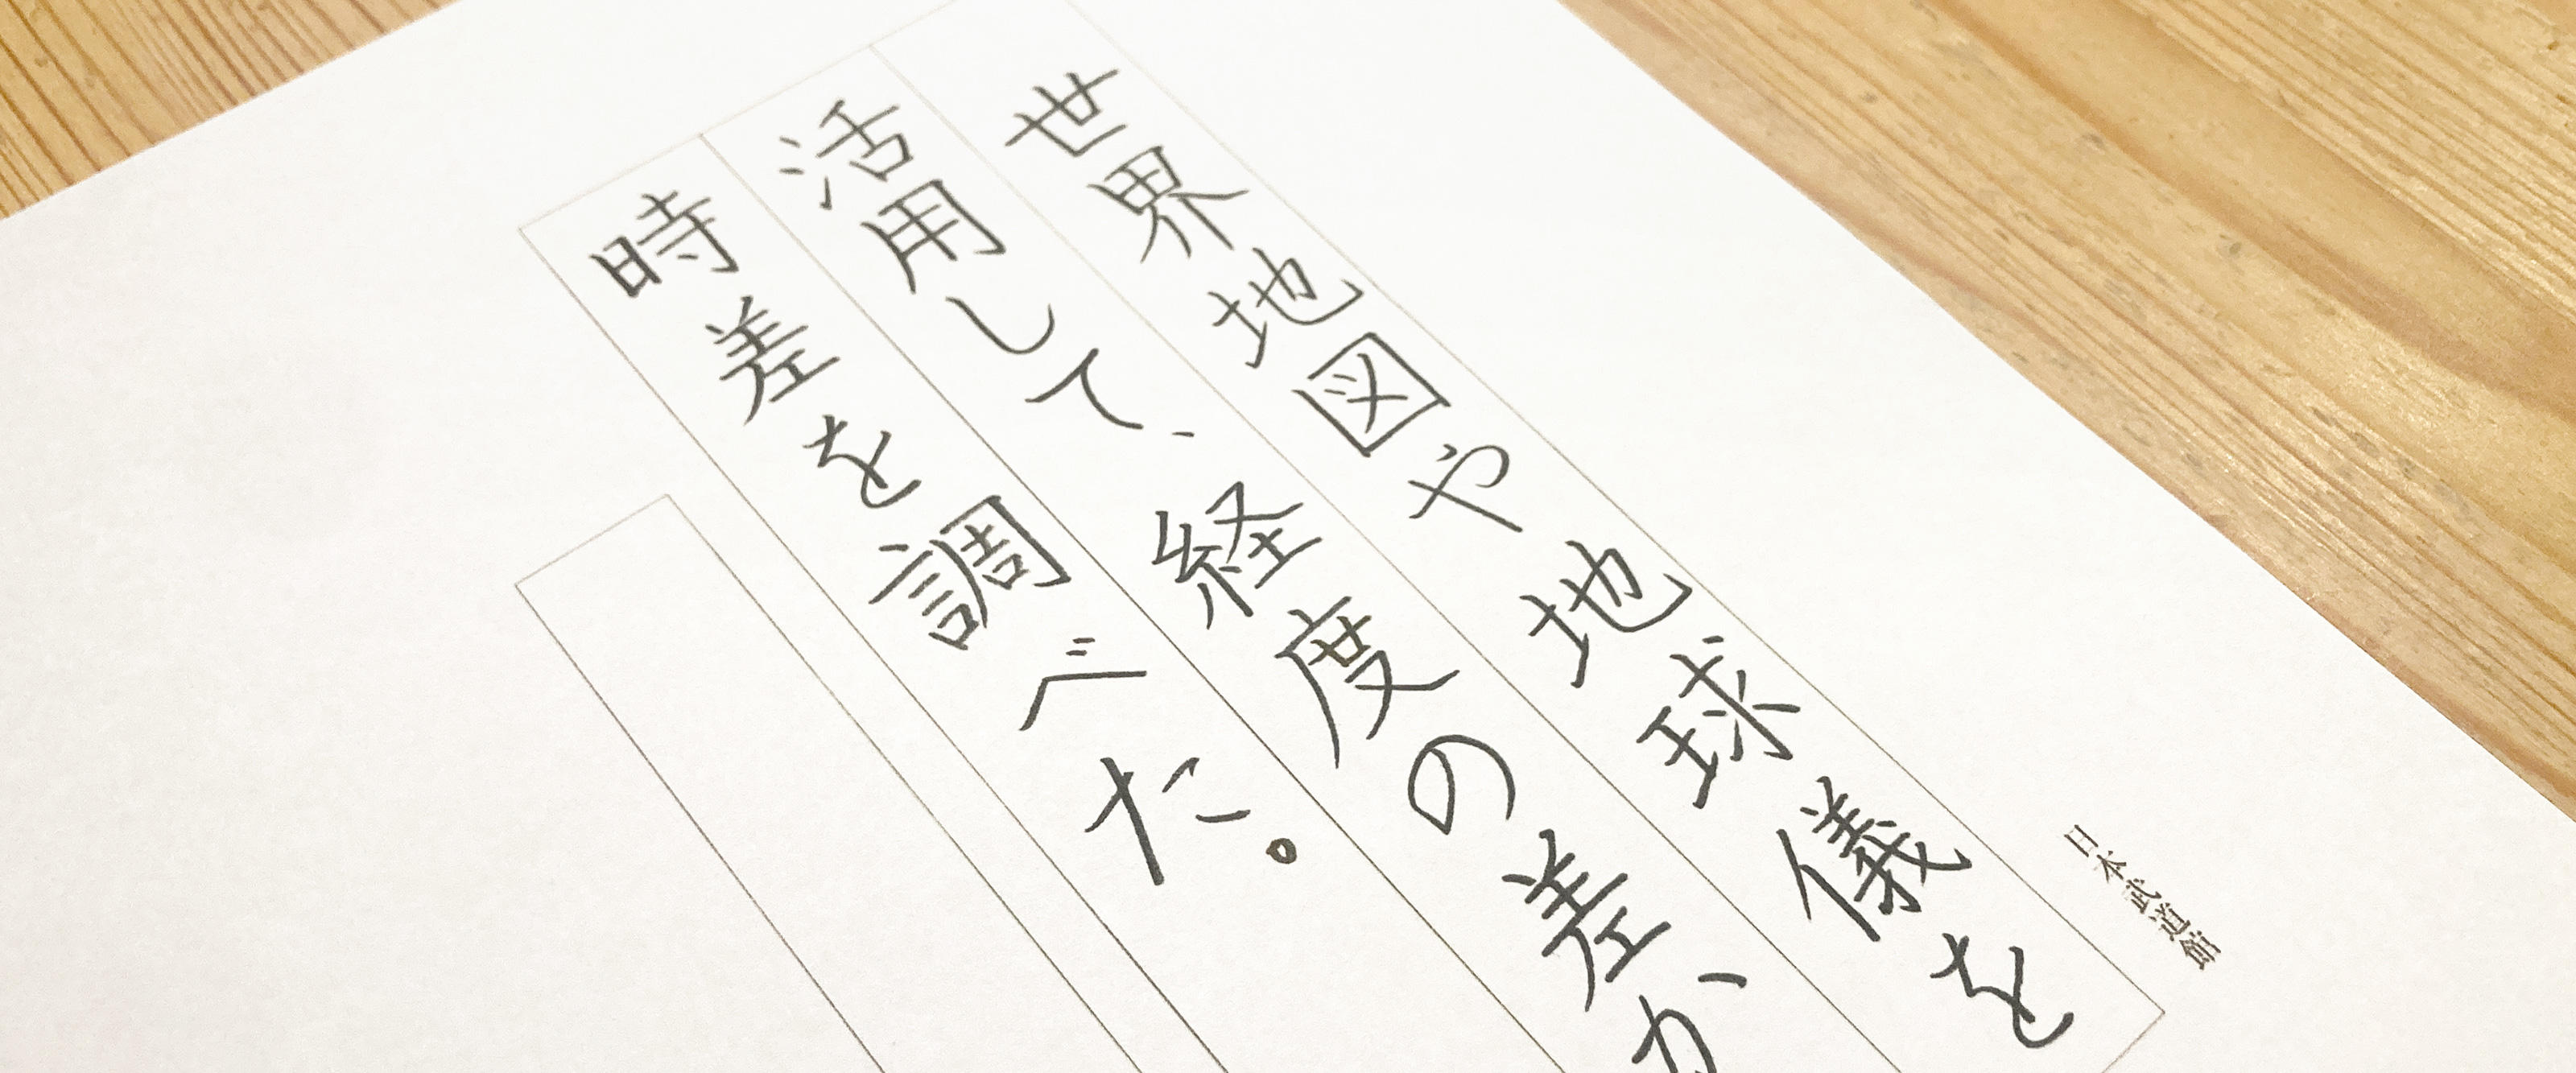 日本武道館
世界地図や地球儀を
活用して、経度の差か
時差を調べた。